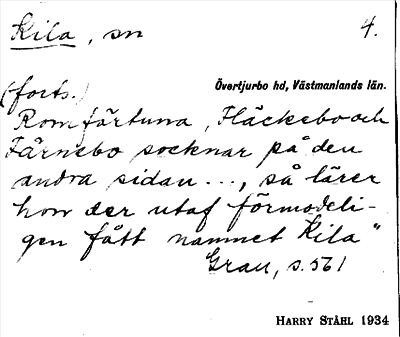 Kila, sn 4.
Övertjurbo hd, Västmanlands län.
(forts.)
Romfärtuna, Fläckebo och
Färnebo socknar på den
andra sidan ..., så lärer
hon der utaf förmodeli-
gen fått namnet Kila"
Grau, s. 561
HARRY STÅHL 1934